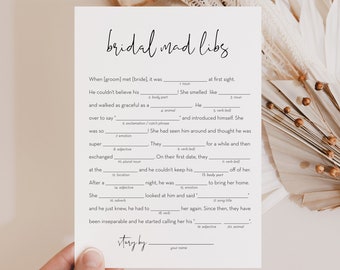 bridal mad libs
When [groom] met [bride], it was ____________ at first sight.
1. noun
He couldn't believe his ____________! She smelled like ____________
2. body part 3. noun
and walked as graceful as a ____________. He ____________
4. animal 5. verb (ed)
over to say "____________" and introduced himself. She
6. exclamation / catch phrase
was so ____________! She had seen him around and thought he was
7. emotion
super ____________. They ____________ for a while and then
8. adjective 9. verb (ed)
exchanged ____________. On their first date, they ____________
10. plural noun 11. verb (ed)
at the ____________ and he couldn't keep his ____________ off of her.
12. location 13. body part
After a ____________ night, he was ____________ to bring her home.
14. adjective 15. emotion
She ____________ looked at him and said "____________"
16. adverb 17. song title
and he just knew, he had to ____________ her again. Since then, they have
18. verb
been inseparable and he started calling his "____________ ____________"
19. adjective 20. animal
story by ____________
your name